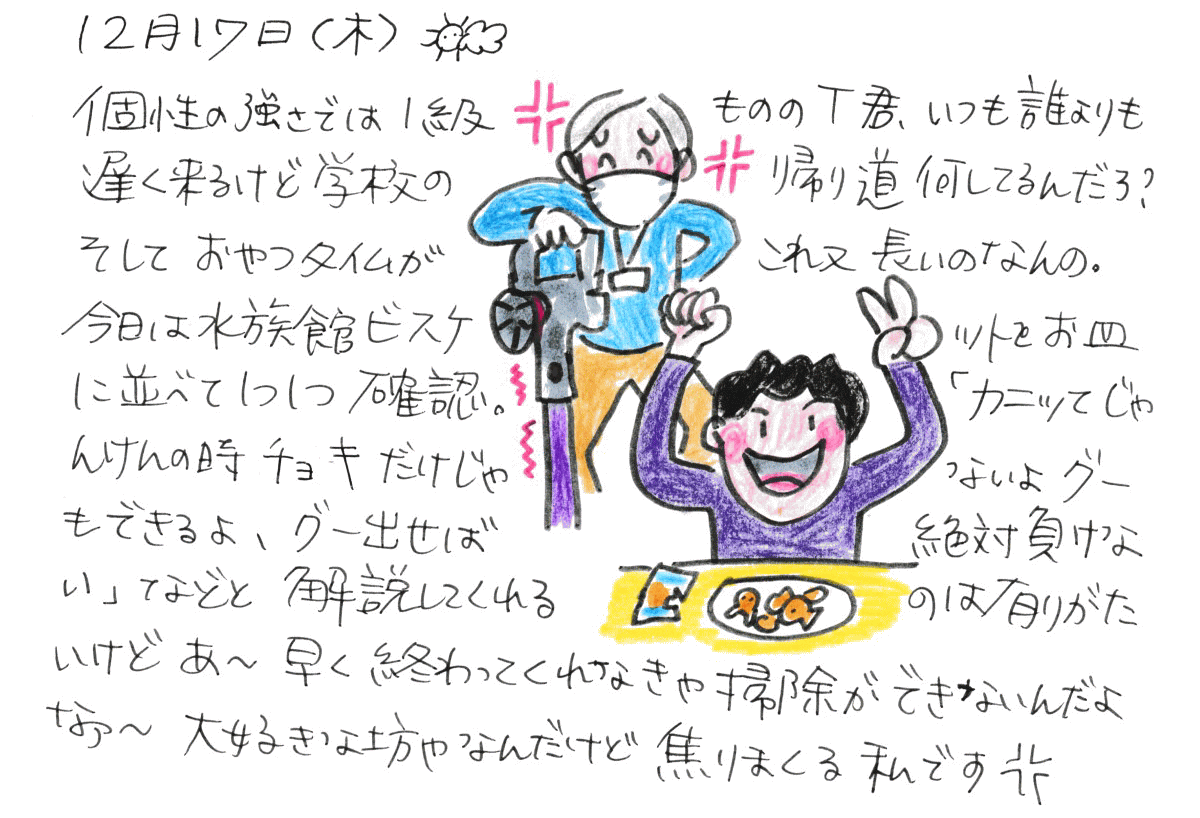 12月17日(木)
個性の強さでは1級ものの丁君、いつも誰よりも
遅く来るけど学校の帰り道何してるんだろ?
そしておやつタイムがこれ又長いのなんの。
今日は水族館ビスケットをお皿
に並べて1つ1つ確認。「カニッてじゃ
んけんの時チョキだけじゃないよグー
もできるよ、グー出せば絶対負けな
い」などと解説してくれるのは有りがた
いけどあ〜早く終わってくれなきゃ掃除ができないんだよ
なァ〜大好きな坊やなんだけど焦りまくる私です